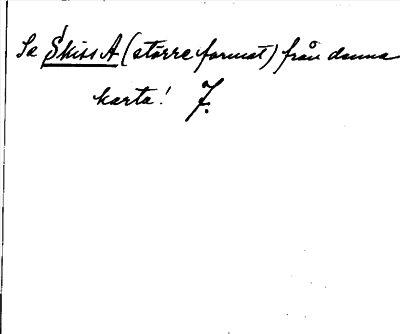 Se Skiss A (större format) från denna
karta! J.